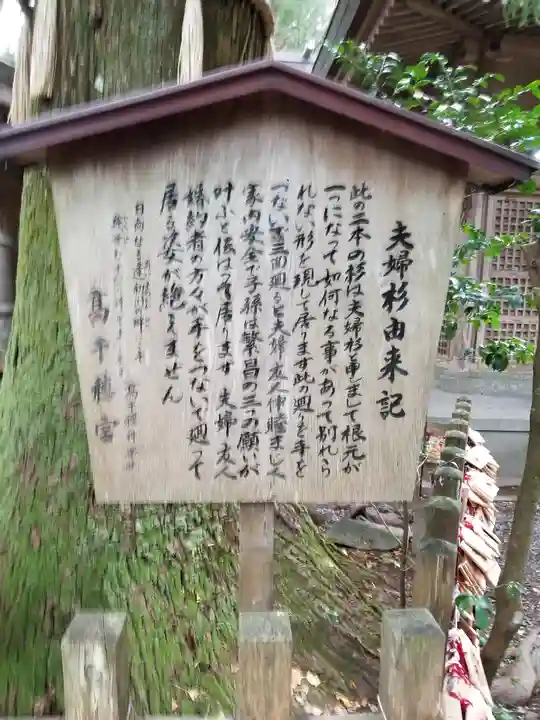 夫婦杉由来記
此の二本の杉は夫婦杉と申しまして根元が
一つになって如何なる事があって別れら
れない形を現して居ります此の廻りを手を
つないで三回廻ると夫婦友人仲睦まじく
家内安全で子孫は繁昌の三つの願いが
叶ふと伝はって居ります 夫婦友人
婚約者の方々が手をつないで廻って
居る姿が絶えません
高千穂宮